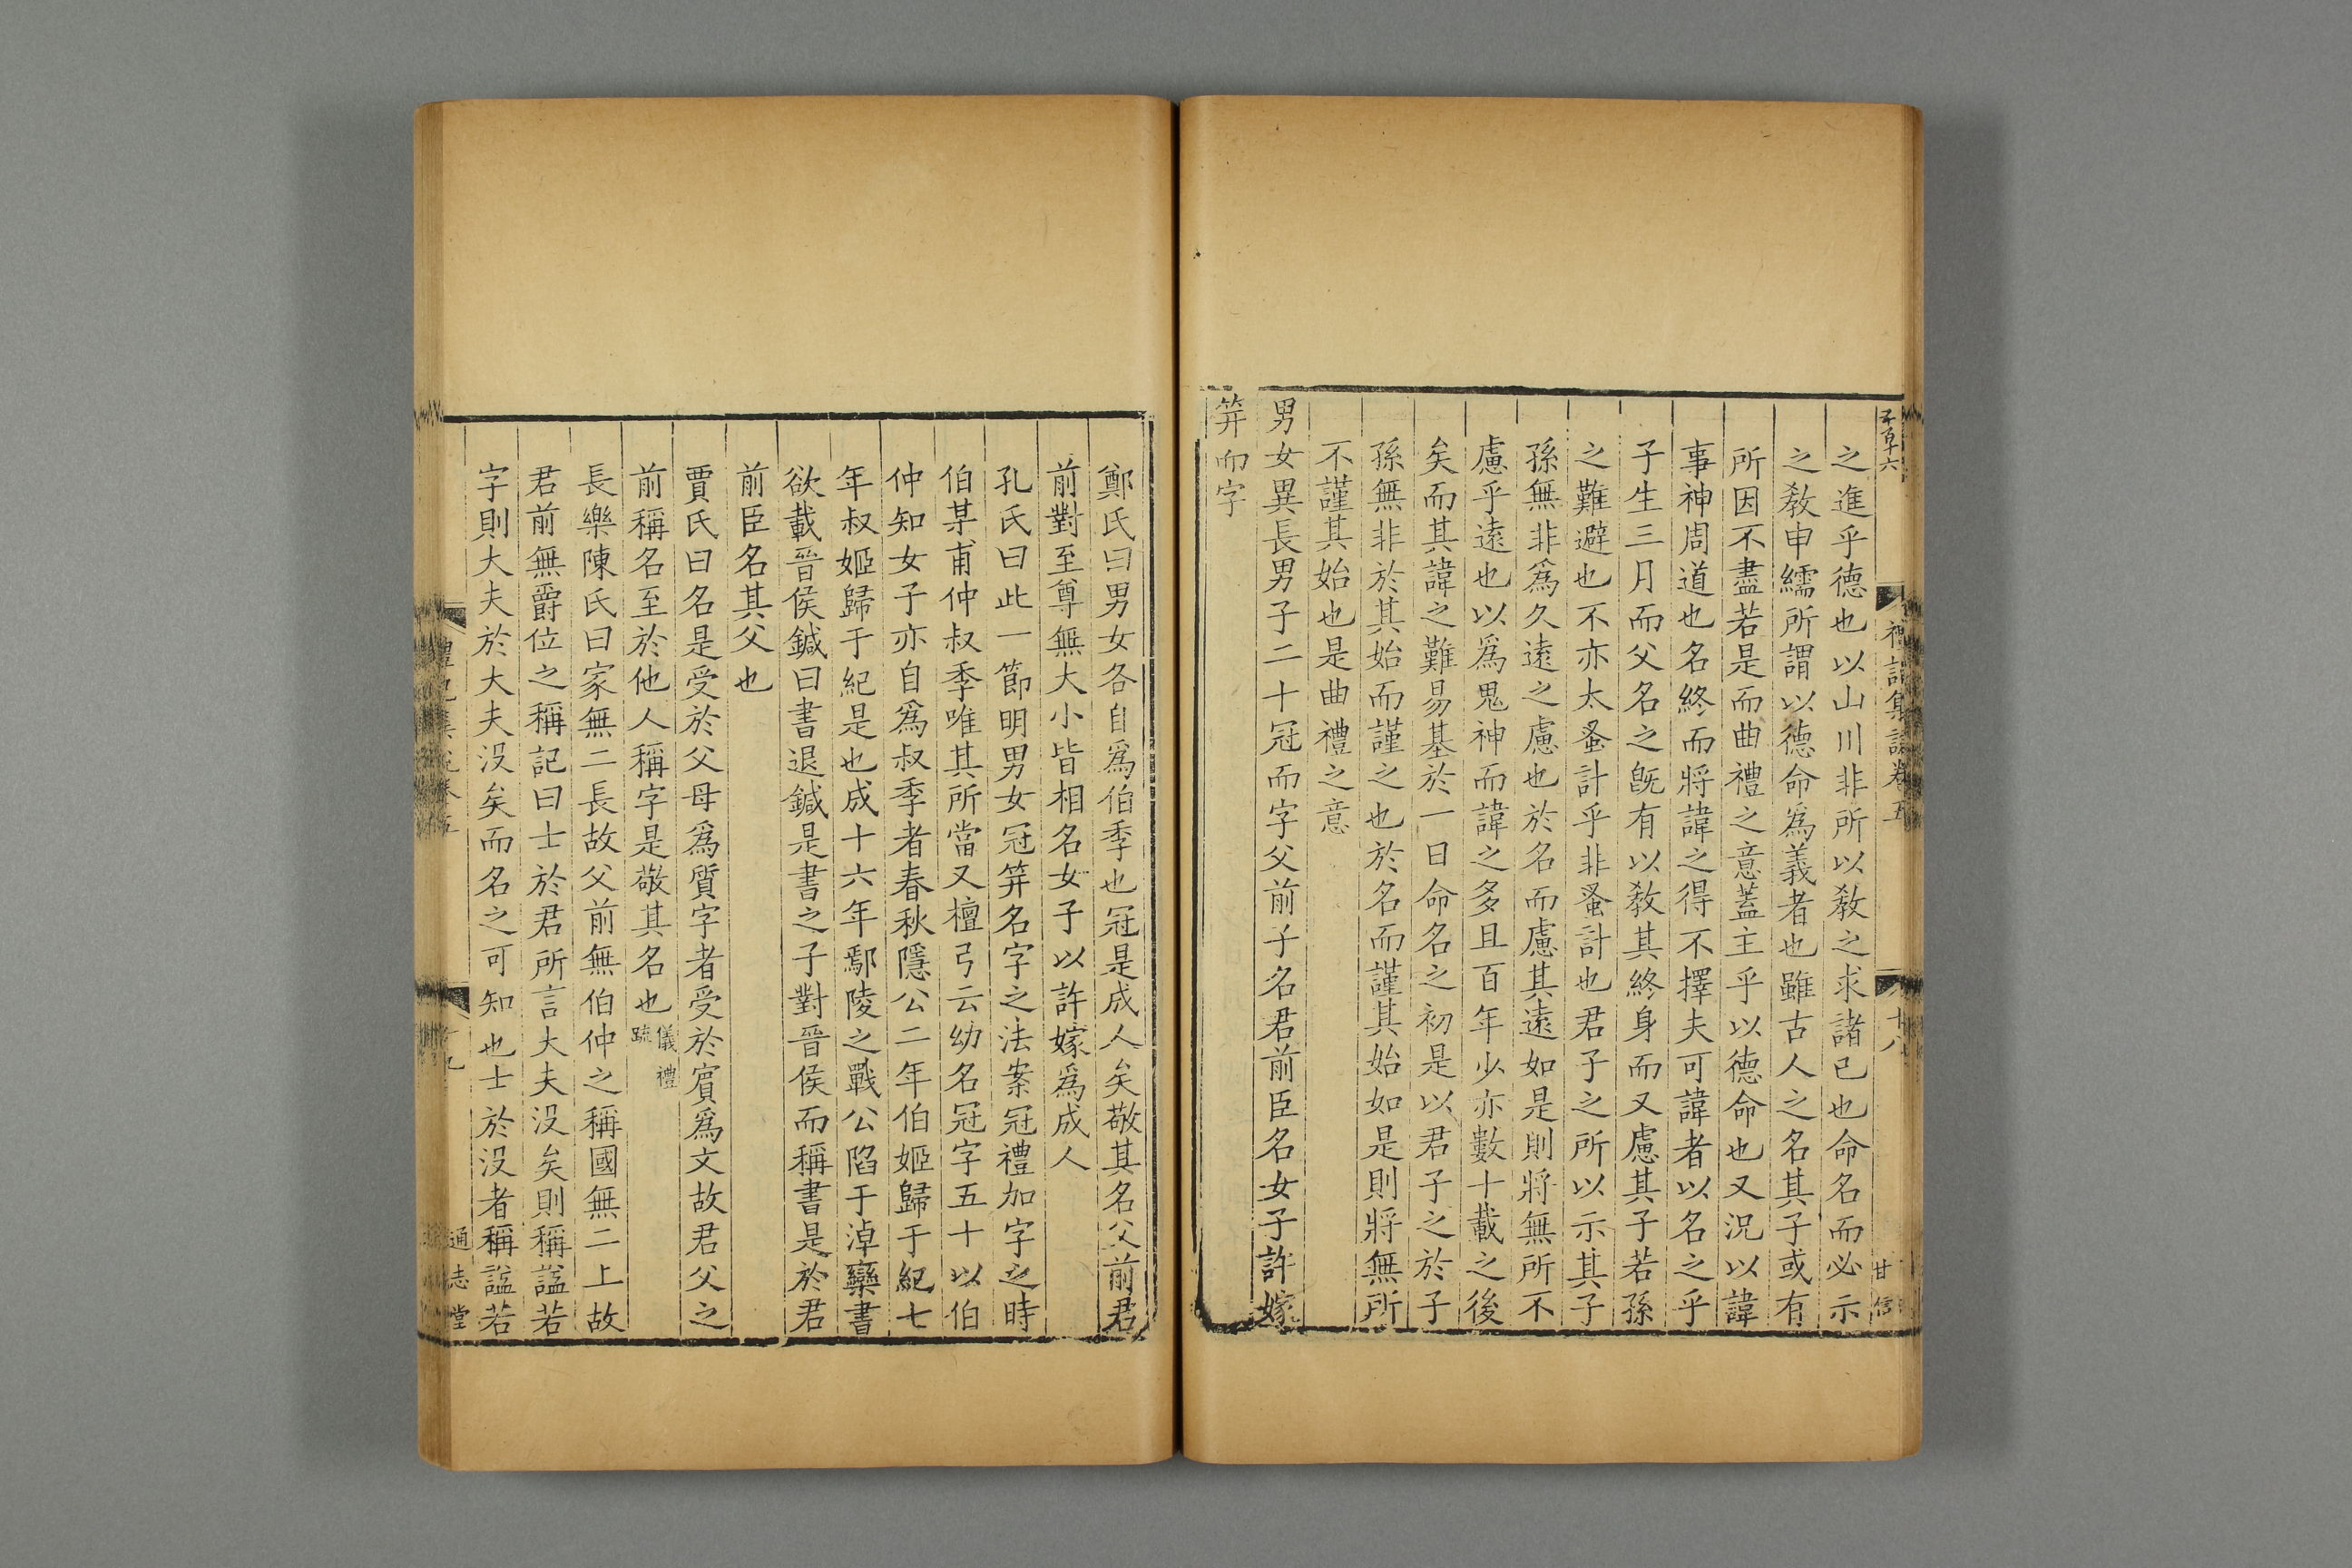 禮記集說卷五
十八
甘
信
之進乎德也以山川非所以敎之求諸已也命名而必示
之敎申繻所謂以德命爲義者也雖古人之名其子或有
所因不盡若是而曲禮之意蓋主乎以德命也又況以諱
事神周道也名終而將諱之得不擇夫可諱者以名之乎
子生三月而父名之旣有以敎其終身而又慮其子若孫
之難避也不亦太蚤計乎非蚤計也君子之所以示其子
孫無非爲久遠之慮也於名而慮其遠如是則將無所不
慮乎遠也以爲鬼神而諱之多且百年少亦數十載之後
矣而其諱之難易基於一日命名之初是以君子之於子
孫無非於其始而謹之也於名而謹其始如是則將無所
不謹其始也是曲禮之意
男女異長男子二十冠而字父前子名君前臣名女子許嫁
笄而字
鄭氏曰男女各自爲伯季也冠是成人矣敬其名父前君
前對至尊無大小皆相名女子以許嫁爲成人
孔氏曰此一節明男女冠笄名字之法案冠禮加字之時
伯某甫仲叔季唯其所當又檀弓云幼名冠字五十以伯
仲知女子亦自爲叔季者春秋隱公二年伯姬歸于紀七
年叔姬歸于紀是也成十六年鄢陵之戰公陷于淖欒書
欲載晉侯鍼曰書退鍼是書之子對晉侯而稱書是於君
前臣名其父也
賈氏曰名是受於父母爲質字者受於賓爲文故君父之
前稱名至於他人稱字是敬其名也儀禮疏
長樂陳氏曰家無二長故父前無伯仲之稱國無二上故
君前無爵位之稱記曰士於君所言大夫没矣則稱謚若
字則大夫於大夫没矣而名之可知也士於没者稱謚若
通志堂